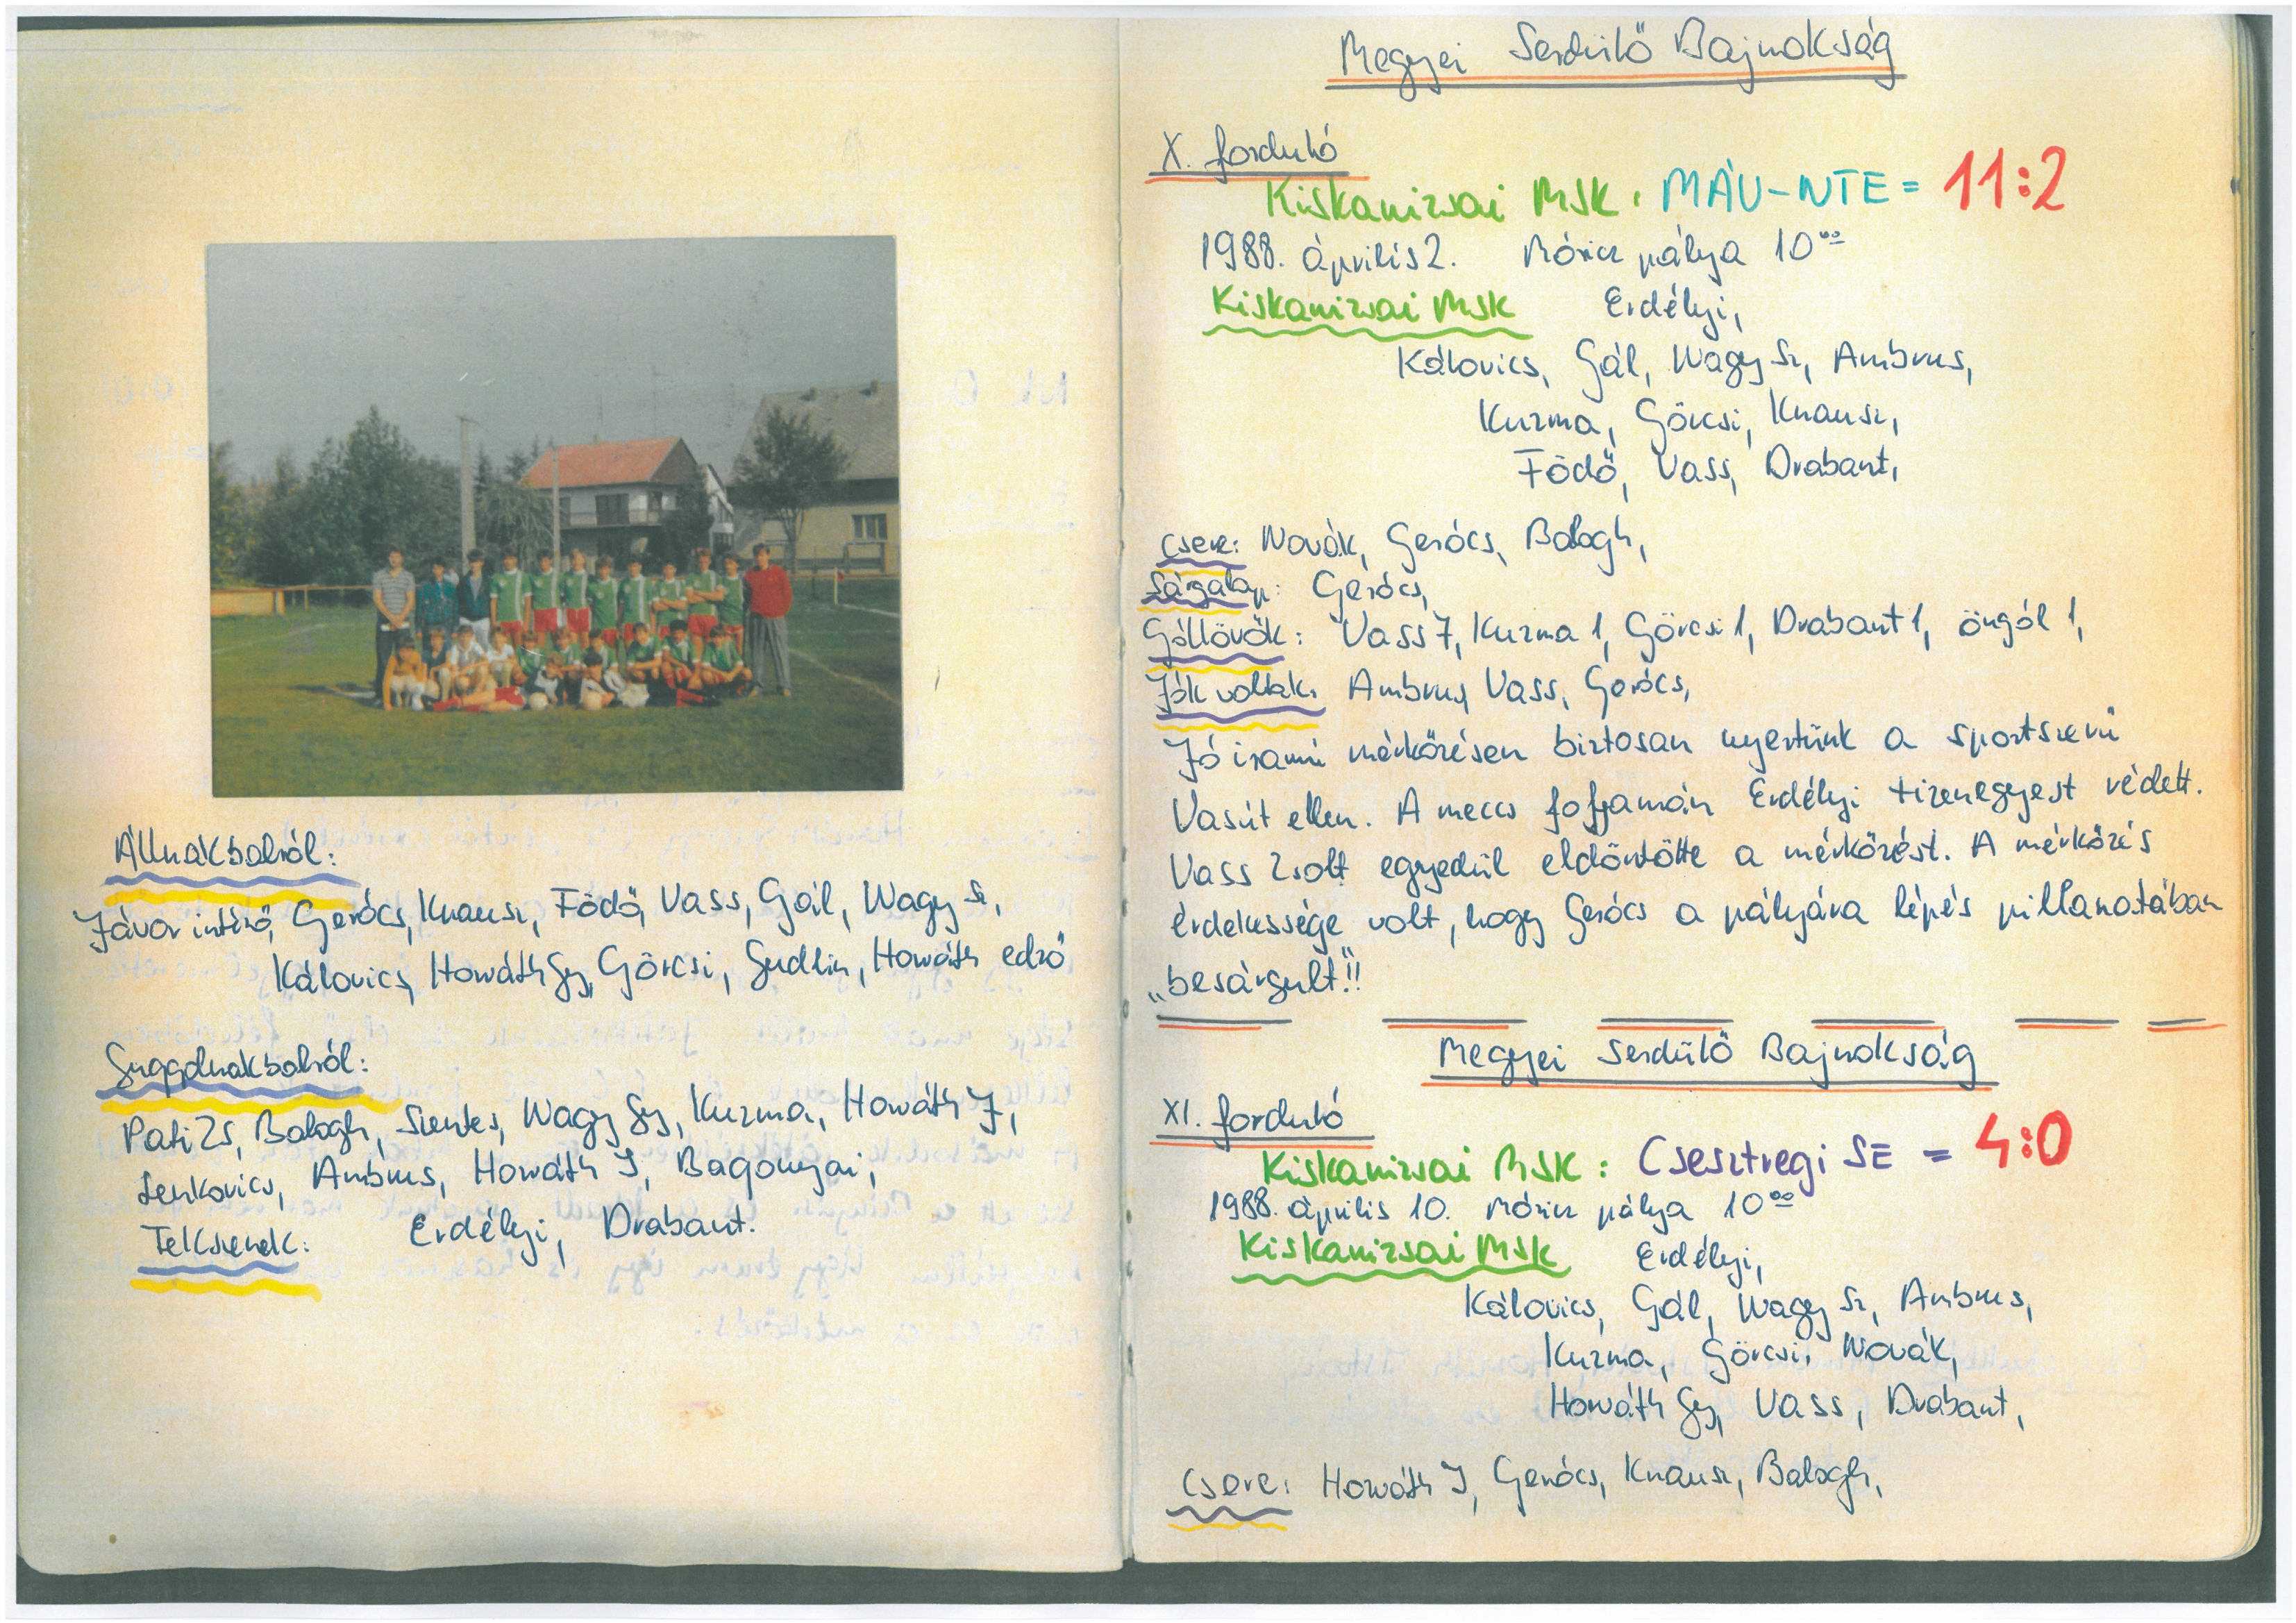 Állnak balról:
Jávor intéző, Gerócs, Knausz, Födő, Vass, Gál, Nagy Sz,
Kálovics, Horváth Gy, Görcsi, Gudlin, Horváth edző
Guggolnak balról:
Pati Zs, Balogh, Szentes, Nagy Gy, Kuzma, Horváth J,
Lenkovics, Ambrus, Horváth I, Bagonyai,
Fekszenek: Erdélyi, Drabant.
Megyei Serdülő Bajnokság
X. forduló
Kiskanizsai MSK : MÁV-NTE = 11:2
1988. április 2. Móricz pálya 10⁰⁰
Kiskanizsai MSK Erdélyi,
Kálovics, Gál, Nagy Sz, Ambrus,
Kuzma, Görcsi, Knausz,
Födő, Vass, Drabant,
Csere: Novák, Gerócs, Balogh,
Sárgalap: Gerócs,
Góllövők: Vass 7, Kuzma 1, Görcsi 1, Drabant 1, öngól 1,
Jók voltak: Ambrus, Vass, Gerócs,
Jó iramú mérkőzésen biztosan nyertünk a sportszerű
Vasút ellen. A meccs folyamán Erdélyi tizenegyest védett.
Vass Zsolt egyedül eldöntötte a mérkőzést. A mérkőzés
érdekessége volt, hogy Gerócs a pályára lépés pillanatában
„besárgult"!!
Megyei Serdülő Bajnokság
XI. forduló
Kiskanizsai MSK : Csesztregi SE = 4:0
1988. április 10. Móricz pálya 10⁰⁰
Kiskanizsai MSK Erdélyi,
Kálovics, Gál, Nagy Sz, Ambrus,
Kuzma, Görcsi, Novák,
Horváth Gy, Vass, Drabant,
Csere: Horváth I, Gerócs, Knausz, Balogh,